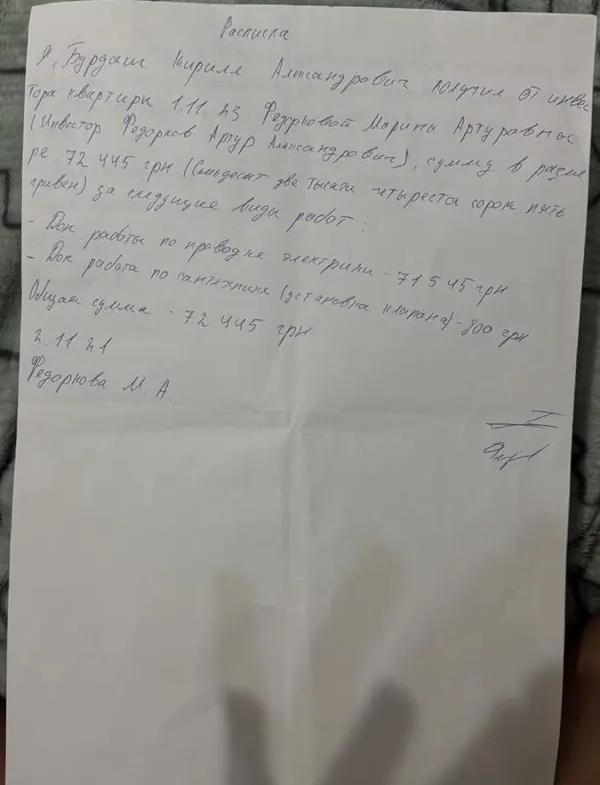 Расписка
Я, Бурдаш Кирилл Александрович получил от инвес
тора квартиры 1.11.23 Федорковой Марины Артуровны
(Инвестор Федорков Артур Александрович), сумму в разме
ре 72 445 грн (Семьдесят две тысячи четыреста сорок пять
гривен) за следующие виды работ:
- Доп работы по проводке электрики - 71 545 грн
- Доп работа по сантехнике (установка клапана) - 900 грн
Общая сумма - 72 445 грн
2.11.21
Федоркова М.А.